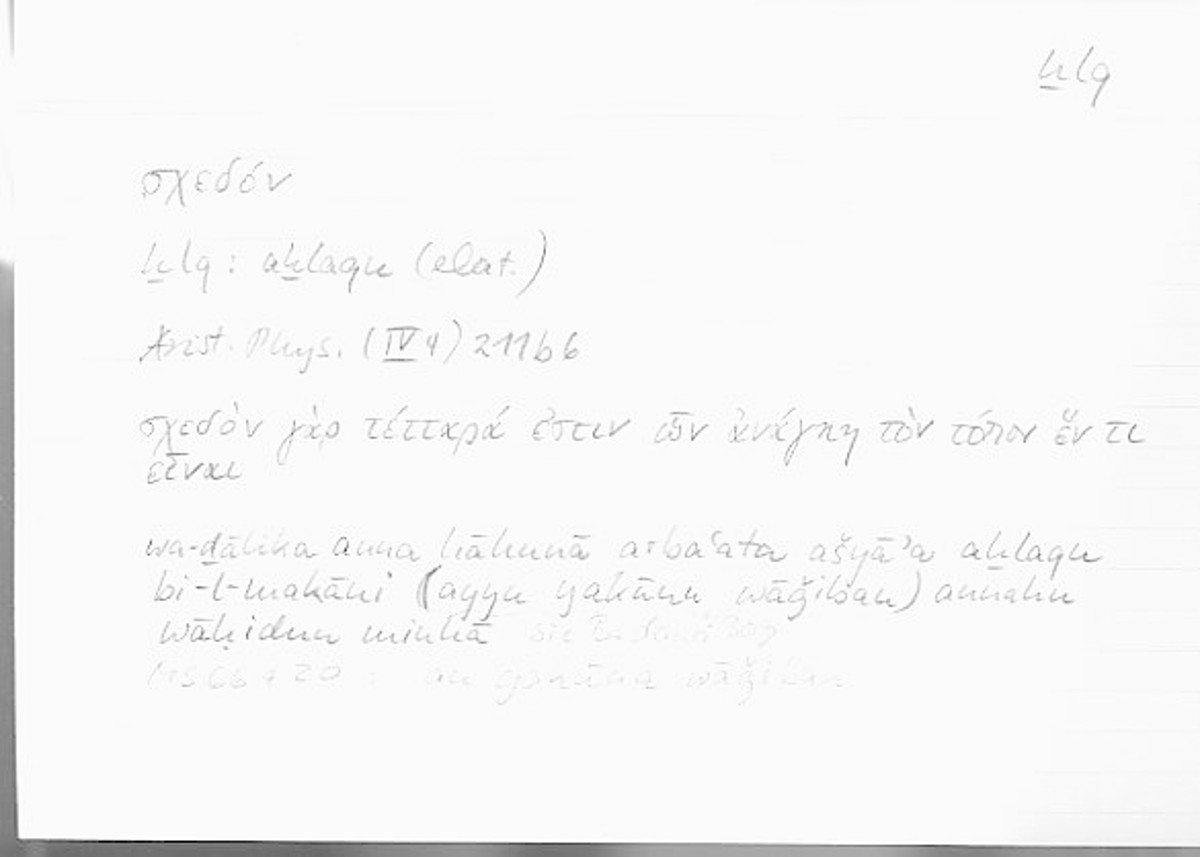 ḫlq
σχεδόν
ḫlq: aḫlaqu (elat.)
Arist. Phys. (IV 4) 211b6
σχεδὸν γὰρ τέτταρά ἐστιν ὧν ἀνάγκη τὸν τόπον ἕν τι
εἶναι
wa-ḏālika anna hāhunā arbaʿata ašyāʾa aḫlaqu
bi-l-makāni (ayyu yakūnu wāǧiban) annahu
wāḥidun minhā
: an yakūna wāǧiban